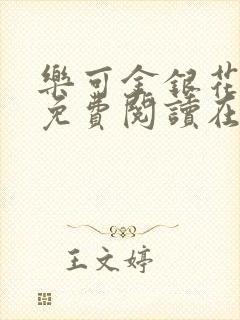 樂可金銀花
免費閱讀在
王文婷